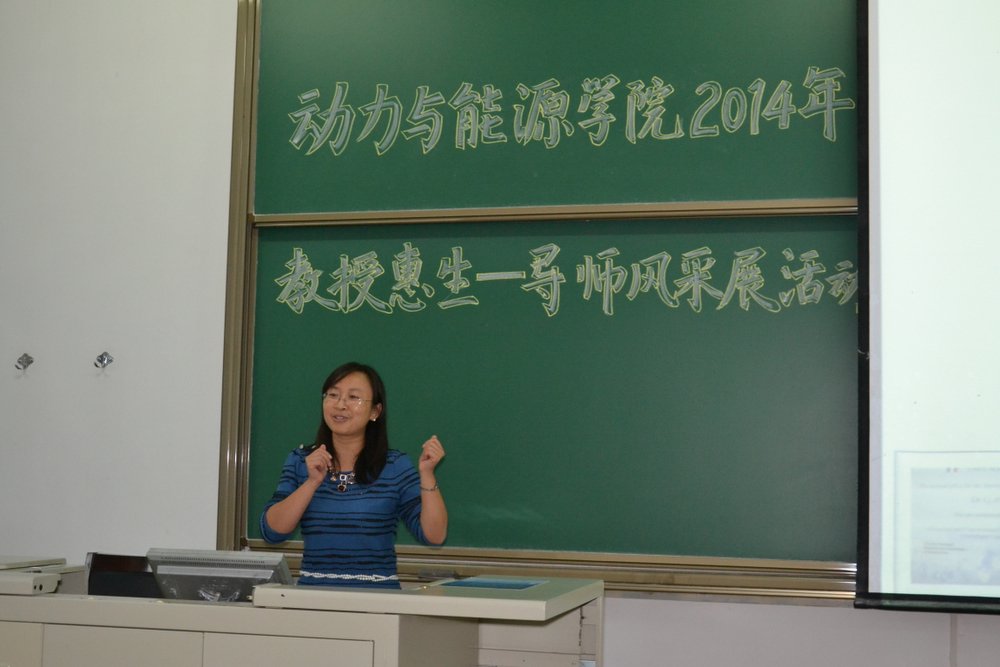 动力与能源学院2014年
教授惠生—导师风采展活动